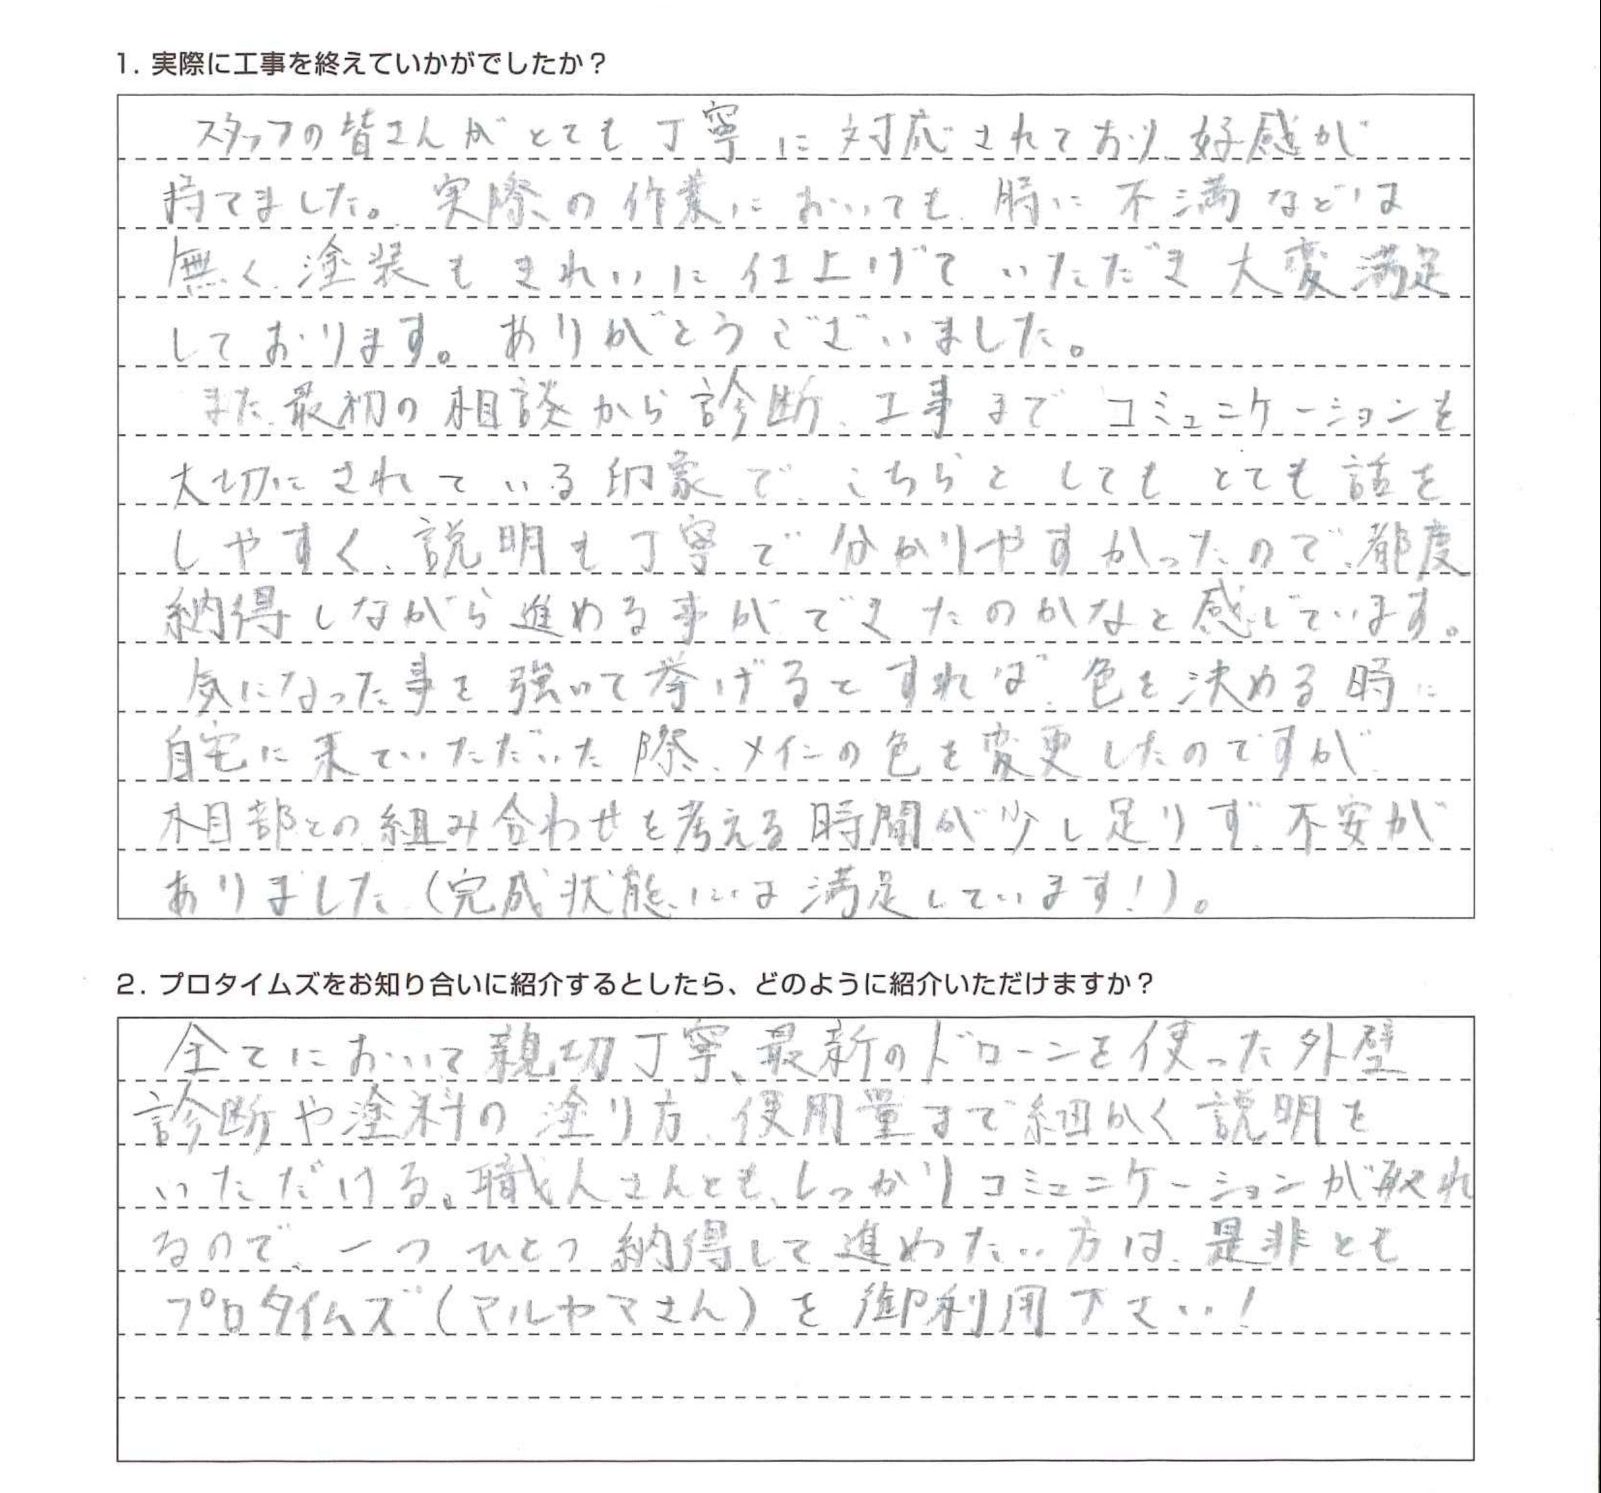 1. 実際に工事を終えていかがでしたか？
スタッフの皆さんがとても丁寧に対応されており、好感が
持てました。実際の作業においても、特に不満などは
無く、塗装もきれいに仕上げていただき大変満足
しております。ありがとうございました。
また、最初の相談から診断、工事までコミュニケーションを
大切にされている印象で、こちらとしてもとても話を
しやすく、説明も丁寧で分かりやすかったので、都度
納得しながら進める事ができたのかなと感じています。
気になった事を強いて挙げるとすれば、色を決める時に
自宅に来ていただいた際、メインの色を変更したのですが、
木目部との組み合わせを考える時間が少し足りず、不安が
ありました（完成状態には満足しています！）。
2. プロタイムズをお知り合いに紹介するとしたら、どのように紹介いただけますか？
全てにおいて親切丁寧、最新のドローンを使った外壁
診断や塗料の塗り方、使用量まで細かく説明を
いただける。職人さんとも、しっかりコミュニケーションが取れ
るので、一つひとつ納得して進めたい方は、是非とも
プロタイムズ（マルヤマさん）を御利用下さい！